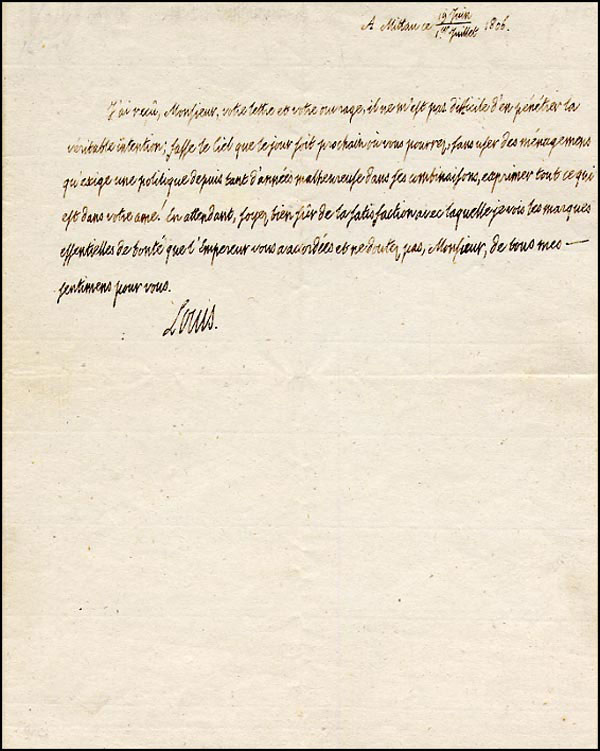 A Mittau ce 19 Juin / 1er Juillet 1806.
J'ai reçû, Monsieur, votre lettre et votre ouvrage, il ne m'est pas difficile d'en pénétrer la
véritable intention; fasse le Ciel que le jour soit prochain où vous pourrez, sans user des ménagemens
qu'exige une politique depuis tant d'années malheureuse dans ses combinaisons, exprimer tout ce qui
est dans votre ame! En attendant, soyez bien sûr de la satisfaction avec laquelle je vois les marques
essentielles de bonté que l'Empereur vous a accordées et ne doutez pas, Monsieur, de tous mes —
sentimens pour vous.
Louis.